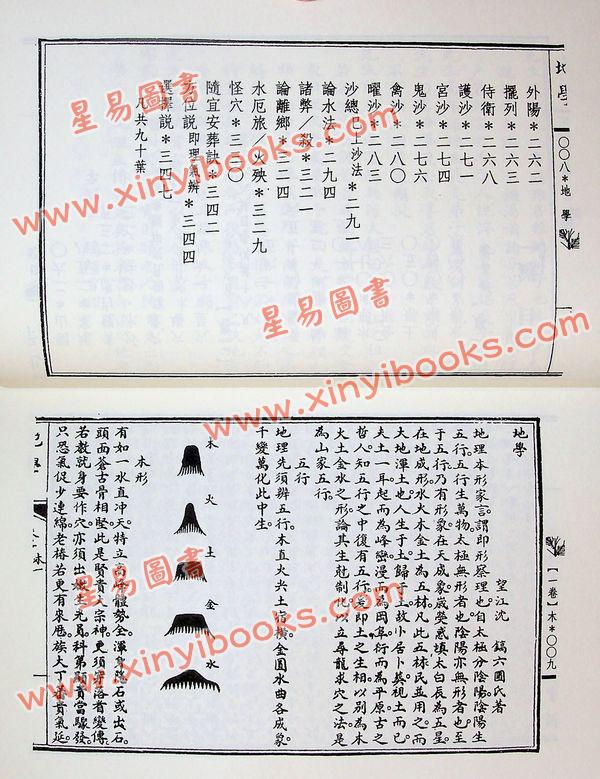 地學
〇〇八*地 學
外陽*二六二
擺列*二六三
侍衛*二六八
護沙*二七一
宮沙*二七六
鬼沙*二七八
禽沙*二八〇
曜沙*二八三
沙總巳上沙法*二九一
論水法*二九四
諸弊／殺*三二一
論離鄉*三二四
水厄旅／火殃*三二九
怪穴*三三〇
隨宜安葬訣*三四二
方位說即理氣辨*三四四
選擇說*三四七
凡共九十葉
星易圖書
www.xinyibooks.com
星易圖書
www.xinyibooks.com
【一卷】木*〇〇九
地學
望江沈 鎬六圃氏著
地理本形家言謂即形察理也自太極分陰陽陰陽生
五行五行生萬物太極無形者也陰陽亦無形者也至
于五行乃有形象在天成象歲熒惑填太白辰為五星
在地成形水火木金土為五材凡此五材民並用之而
大地渾土也人生于土歸于土故小居卜葬視土而已
夫土一耳起而為峰巒漫而為岡阜衍而為平原古之
哲人知五行之中復有五行若即土之生相以別為木
火土金水之形論其生尅制化以立尋龍求穴之法是
為山家五行
五行
地理先須辨五行木直火尖土宿橫金圓水曲各成象
千變萬化此中生
木 火 土 金 水
木形
有如一水直冲天特立高峰體勢全渾身隐石或出石
頭面蒼古骨相堅此是賢貴大宗神更須
若教就身要作穴亦須出
只恐氣促少連綿老椿若更有
星易圖書
www.xinyibooks.com
星易圖書
www.xinyibooks.com